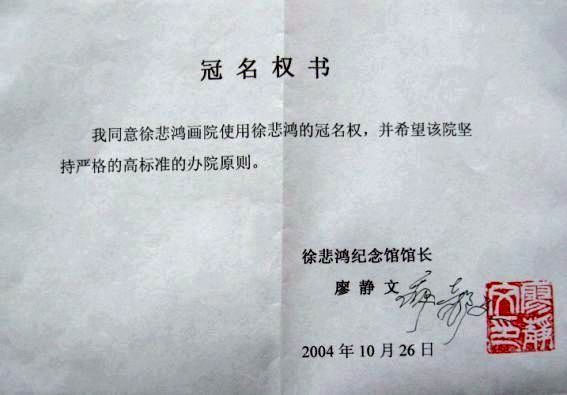 冠名权书
我同意徐悲鸿画院使用徐悲鸿的冠名权，并希望该院坚
持严格的高标准的办院原则。
徐悲鸿纪念馆馆长
廖静文 廖静文
2004年10月26日
廖静文印